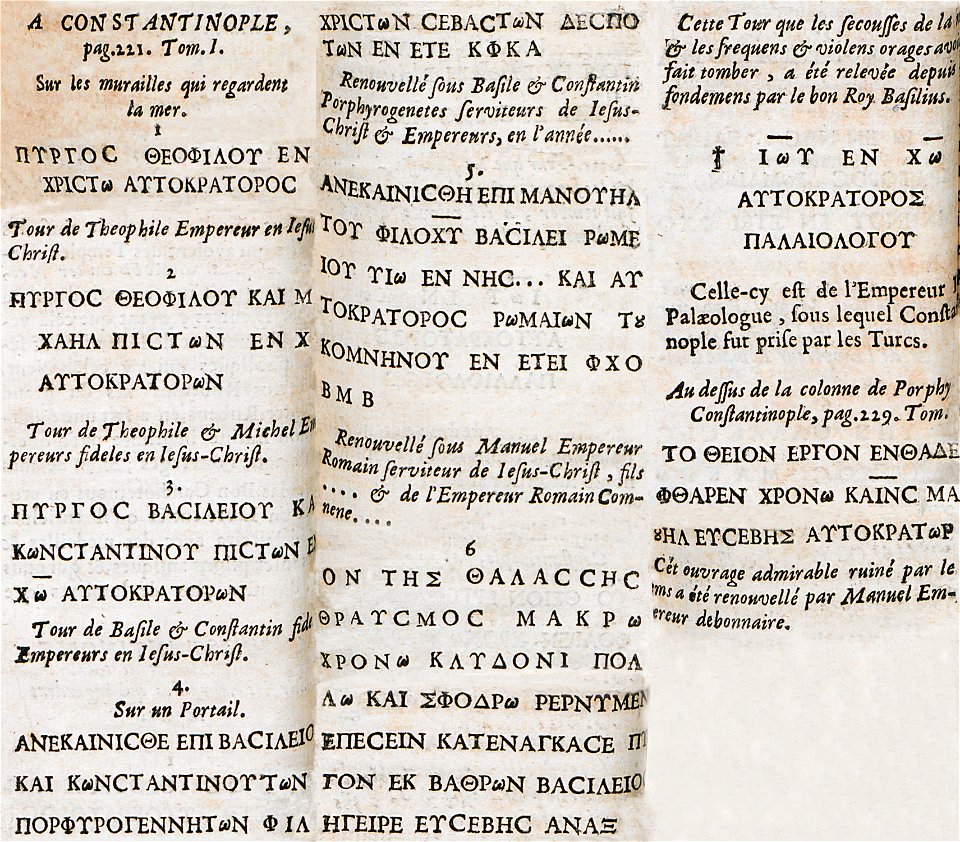 A CONSTANTINOPLE,
pag.221. Tom. I.
Sur les murailles qui regardent
la mer.
1
ΠΥΡΓΟC ΘΕΟΦΙΛΟΥ ΕΝ
ΧΡΙCΤω ΑΥΤΟΚΡΑΤΟΡΟC
Tour de Theophile Empereur en Iesu
Chriſt.
2
ΠΥΡΓΟC ΘΕΟΦΙΛΟΥ ΚΑΙ Μ
ΧΑΗΛ ΠΙCΤωΝ ΕΝ Χ
ΑΥΤΟΚΡΑΤΟΡωΝ
Tour de Theophile & Michel Em
pereurs fideles en Ieſus-Chriſt.
3.
ΠΥΡΓΟC ΒΑCΙΛΕΙΟΥ ΚΑ
ΚωΝCΤΑΝΤΙΝΟΥ ΠΙCΤωΝ Ε
Χω̅ ΑΥΤΟΚΡΑΤΟΡωΝ
Tour de Baſile & Conſtantin fide
Empereurs en Ieſus-Chriſt.
4.
Sur un Portail.
ΑΝΕΚΑΙΝΙCΘΕ ΕΠΙ ΒΑCΙΛΕΙΟ
ΚΑΙ ΚωΝCΤΑΝΤΙΝΟΥ ΤωΝ
ΠΟΡΦΥΡΟΓΕΝΝΗΤωΝ ΦΙΛ
ΧΡΙCΤωΝ CΕΒΑCΤωΝ ΔΕCΠΟ
ΤωΝ ΕΝ ΕΤΕ ΚΦΚΑ
Renouvellé ſous Baſile & Conſtantin
Porphyrogenetes ſerviteurs de Ieſus-
Chriſt & Empereurs, en l'année......
5.
ΑΝΕΚΑΙΝΙCΘΗ ΕΠΙ ΜΑΝΟΥΗΛ
ΤΟΥ ΦΙΛΟΧ̅Υ̅ ΒΑCΙΛΕΙ ΡωΜΕ
ΙΟΥ ΥΙω ΕΝ ΝΗC... ΚΑΙ ΑΥ
ΤΟΚΡΑΤΟΡΟC ΡωΜΑΙωΝ Τȣ
ΚΟΜΝΗΝΟΥ ΕΝ ΕΤΕΙ ΦΧΟ
Β Μ Β
Renouvellé ſous Manuel Empereur
Romain ſerviteur de Ieſus-Chriſt, fils
.... & de l'Empereur Romain Com-
nene....
6
ΟΝ ΤΗΣ ΘΑΛΑCCΗC
ΘΡΑΥCΜΟC ΜΑΚΡω
ΧΡΟΝω ΚΛΥΔΟΝΙ ΠΟΛ
Λω ΚΑΙ ΣΦΟΔΡω ΡΕΡΝΥΜΕΝ
ΕΠΕCΕΙΝ ΚΑΤΕΝΑΓΚΑCΕ ΠΥ
ΓΟΝ ΕΚ ΒΑΘΡωΝ ΒΑCΙΛΕΙΟ
ΗΓΕΙΡΕ ΕΥCΕΒΗC ΑΝΑΞ
Cette Tour que les ſecouſſes de la
& les frequens & violens orages avo
fait tomber, a été relevée depuis
fondemens par le bon Roy Baſilius.
† Ιω̅Υ ΕΝ Χω̅
ΑΥΤΟΚΡΑΤΟΡΟΣ
ΠΑΛΑΙΟΛΟΓΟΥ
Celle-cy eſt de l'Empereur
Palæologue, ſous lequel Conſta
nople fut priſe par les Turcs.
Au deſſus de la colonne de Porphy
Conſtantinople, pag.229. Tom.
ΤΟ ΘΕΙΟΝ ΕΡΓΟΝ ΕΝΘΑΔΕ
ΦΘΑΡΕΝ ΧΡΟΝω ΚΑΙ̅Ν̅C ΜΑ
ȣΗΛ ΕΥCΕΒΗΣ ΑΥΤΟΚΡΑΤωΡ
Cét ouvrage admirable ruiné par le
ms a été renouvellé par Manuel Em-
ereur debonnaire.